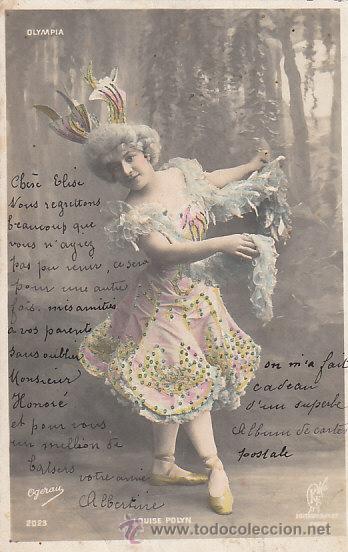 OLYMPIA
Chère Elise
Nous regrettons
beaucoup que
vous n'ayez
pas pu venir, ce sera
pour une autre
fois. mes amitiés
à vos parents
sans oublier
Monsieur
Honoré
et pour vous
un million de
baisers
votre amie
Albertine
on m'a fait
cadeau
d'un superbe
Album de cartes
postale
Ogerau
2023
LOUISE POLYN
todocoleccion
www.todocoleccion.net